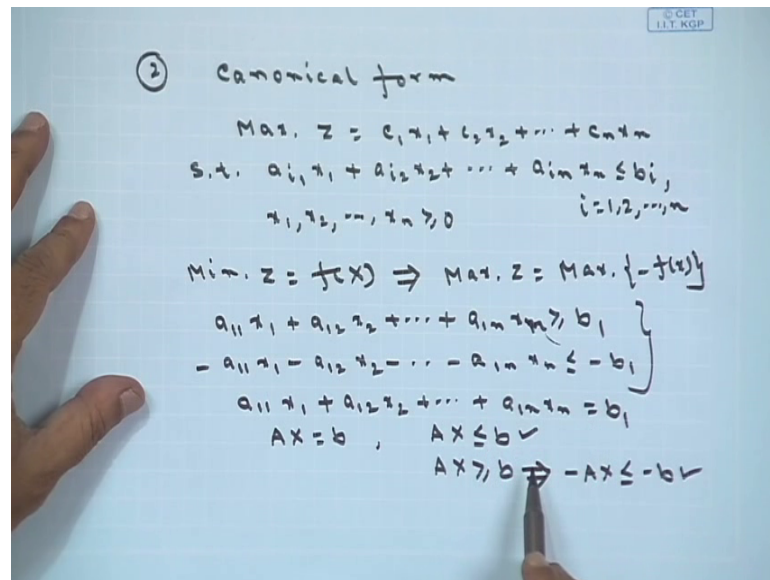 © CET
I.I.T. KGP
② Canonical form
Max. Z = c₁x₁ + c₂x₂ + ... + cₙxₙ
s.t. aᵢ₁x₁ + aᵢ₂x₂ + ... + aᵢₙxₙ ≤ bᵢ,
i=1,2,...,n
x₁, x₂, ..., xₙ ≥ 0
Min. Z = f(X) ⇒ Max. Z = Max. {-f(x)}
a₁₁x₁ + a₁₂x₂ + ... + a₁ₙxₙ ≥ b₁
- a₁₁x₁ - a₁₂x₂ - ... - a₁ₙxₙ ≤ -b₁
a₁₁x₁ + a₁₂x₂ + ... + a₁ₙxₙ = b₁
AX = b , AX ≤ b ✓
AX ≥ b ⇒ -AX ≤ -b ✓